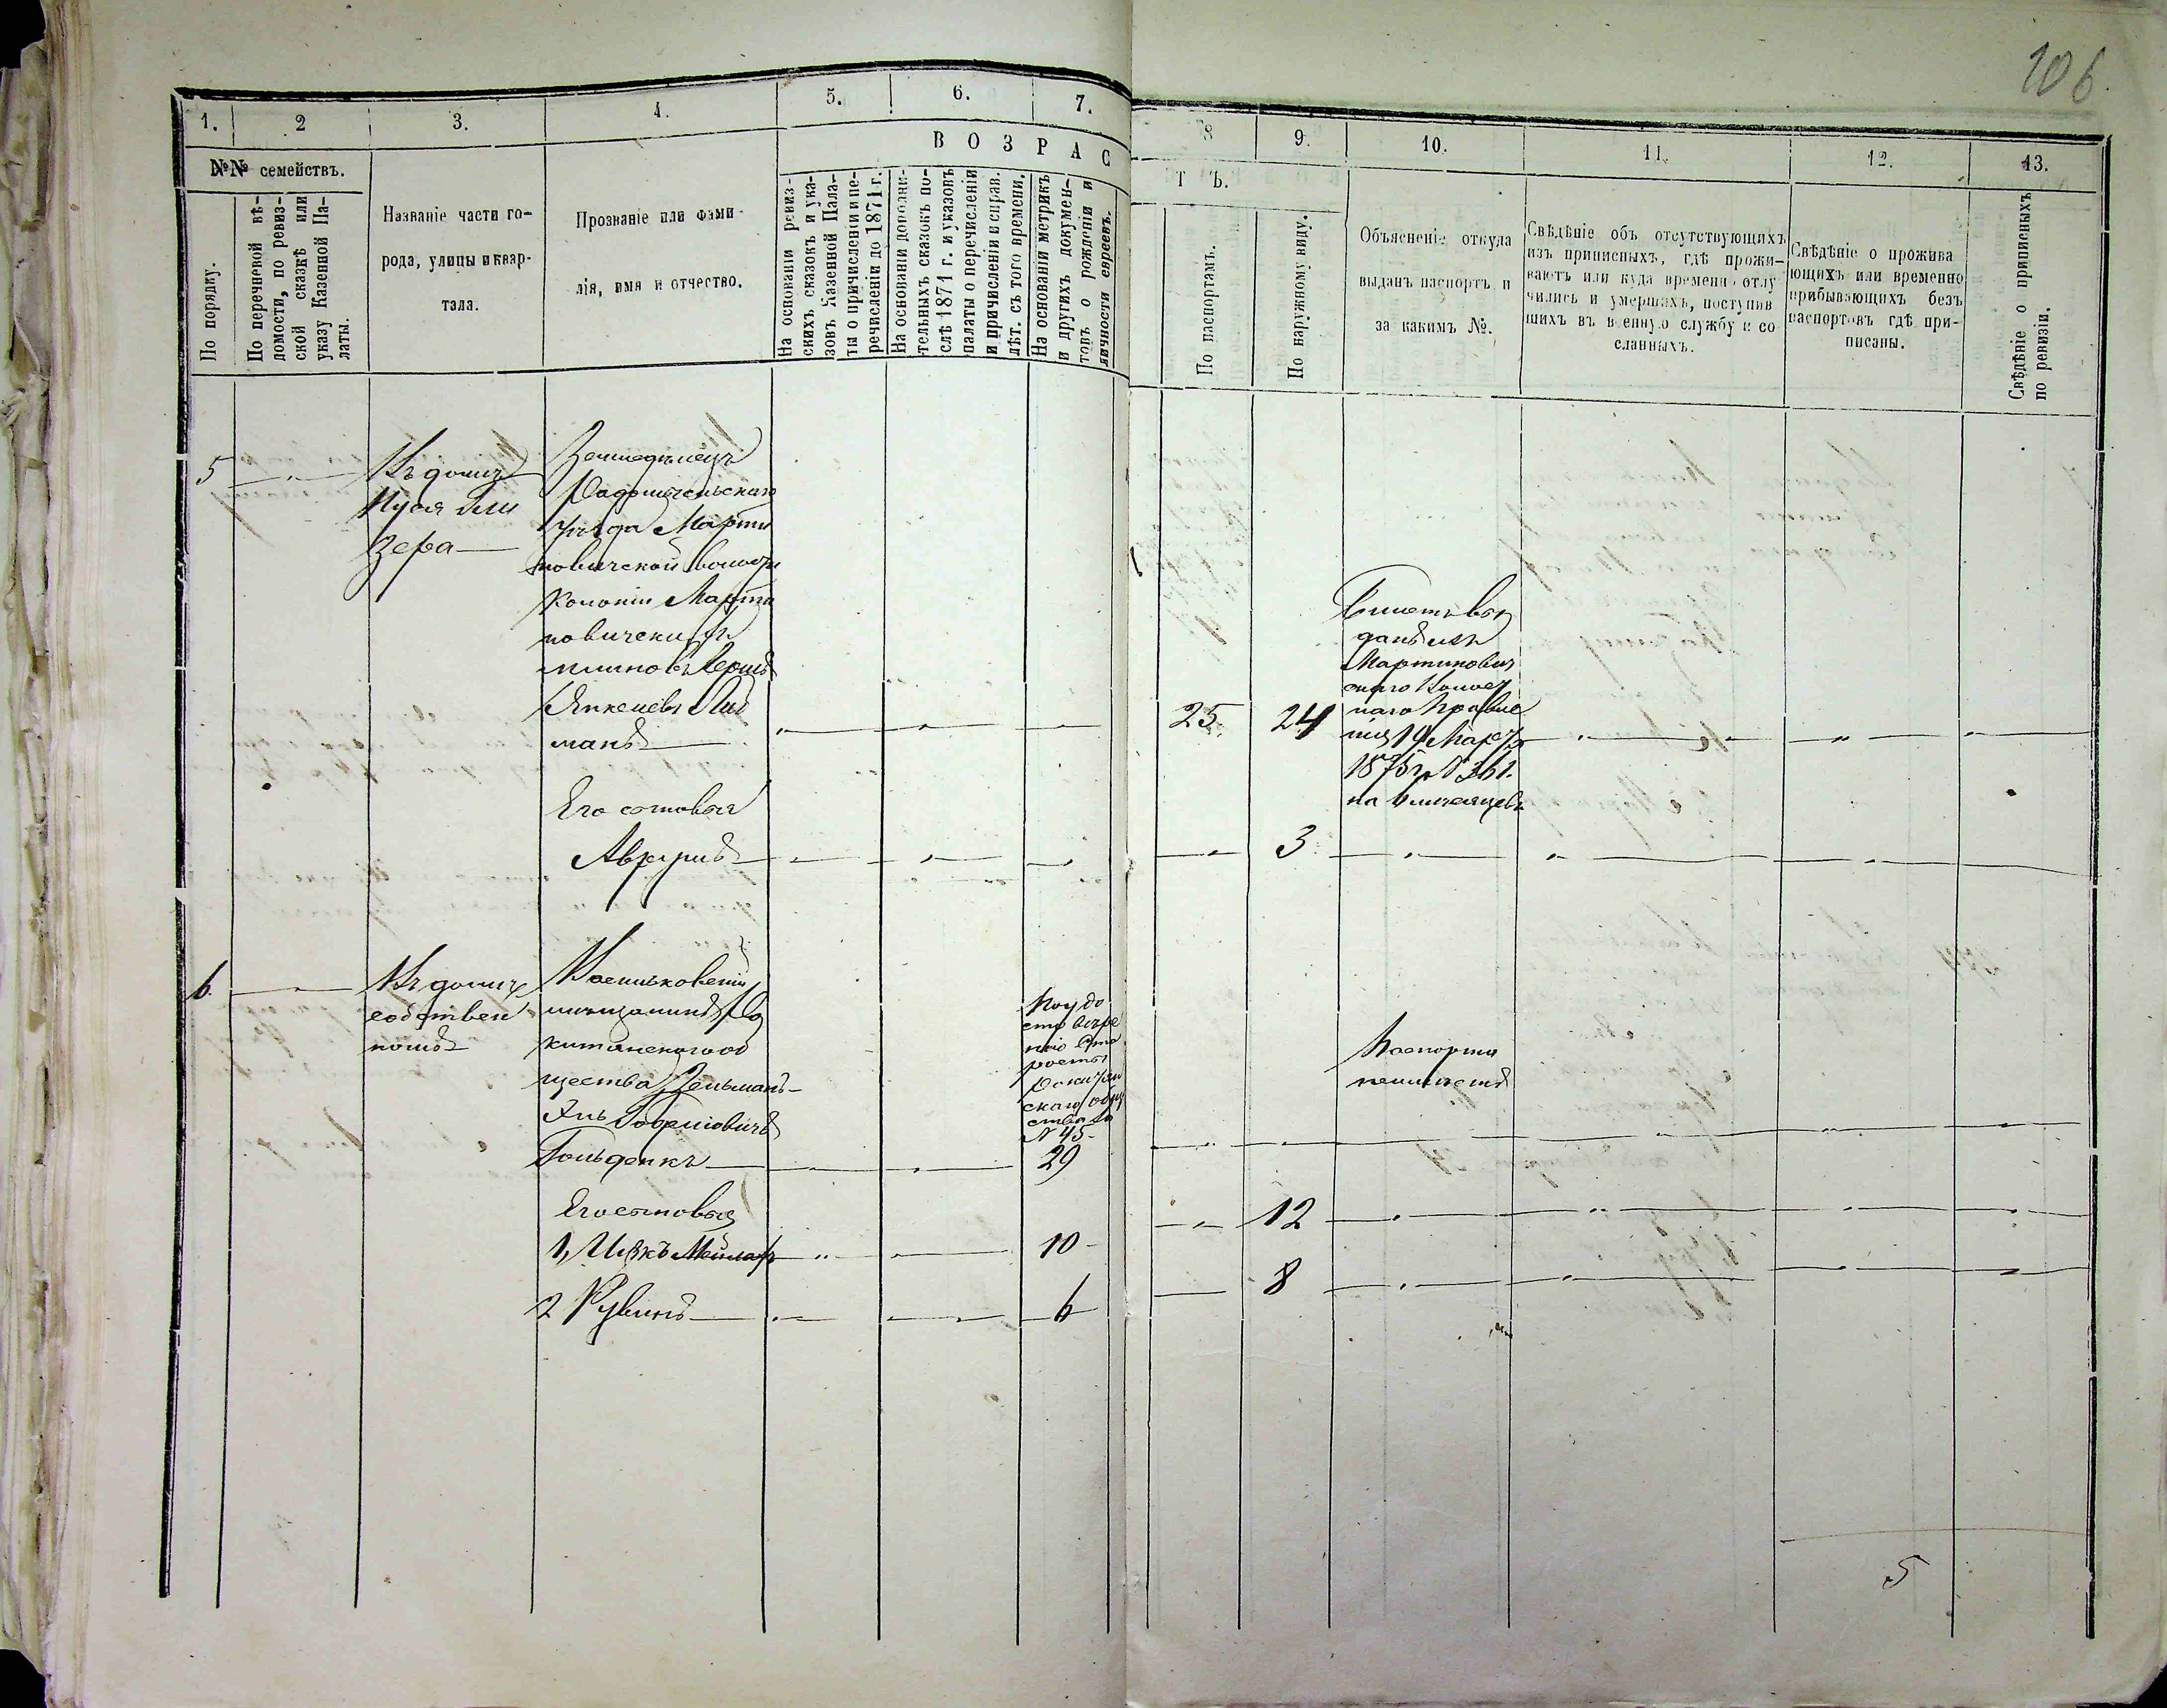 106.
1. 2 3. 4. 5. 6. 7. 8 9. 10. 11. 12. 13.
№№ семействъ.
По порядку.
По перечневой вѣ-
домости, по ревиз-
ской сказкѣ или
указу Казенной Па-
латы.
Названіе части го-
рода, улицы и квар-
тала.
Прозваніе или фами-
лія, имя и отчество.
ВОЗРАСТЪ.
На основаніи ревиз-
скихъ сказокъ и ука-
зовъ Казенной Пала-
ты о причисленіи и пе-
речисленіи до 1871 г.
На основаніи дополни-
тельныхъ сказокъ по-
слѣ 1871 г. и указовъ
палаты о перечисленіи
и причисленіи и справ.
лѣт. съ того времени.
На основаніи метрикъ
и другихъ докумен-
товъ о рожденіи и
личности евреевъ.
По паспортамъ.
По наружному виду.
Объясненіе откуда
выданъ паспортъ и
за какимъ №.
Свѣдѣніе объ отсутствующихъ
изъ приписныхъ, гдѣ прожи-
ваютъ или куда времени отлу
чились и умершихъ, поступив
шихъ въ военную службу и со
сланныхъ.
Свѣдѣніе о прожива
ющихъ или временно
прибывающихъ безъ
паспортовъ гдѣ при-
писаны.
Свѣдѣніе о приписныхъ
по ревизіи.
5
Въ домѣ
зера
Земледѣлецъ
Радомысльскаго
уѣзда Марти
новичской волости
Колоніи Марти
новичски
Янкелевъ Либ
манъ
25. 24
Билетъ вы
данъ изъ
Мартинович
скаго Волост
наго Правле
нія 19 Марта
1875 г. № 361.
на 6 месяцевъ
Его сыновья
3
6.
Въ домѣ
собствен
номъ
Васильковскій
мѣщанинъ Ра
китянскаго об
щества Зельманъ-
Гольденкъ
По удо
стовѣре
нію Ста
росты
Ракитян
скаго общ
ства за
№ 45-
29
Паспорта
неимѣетъ
Его сыновья
10 12
2 Рувинъ 6 8
5